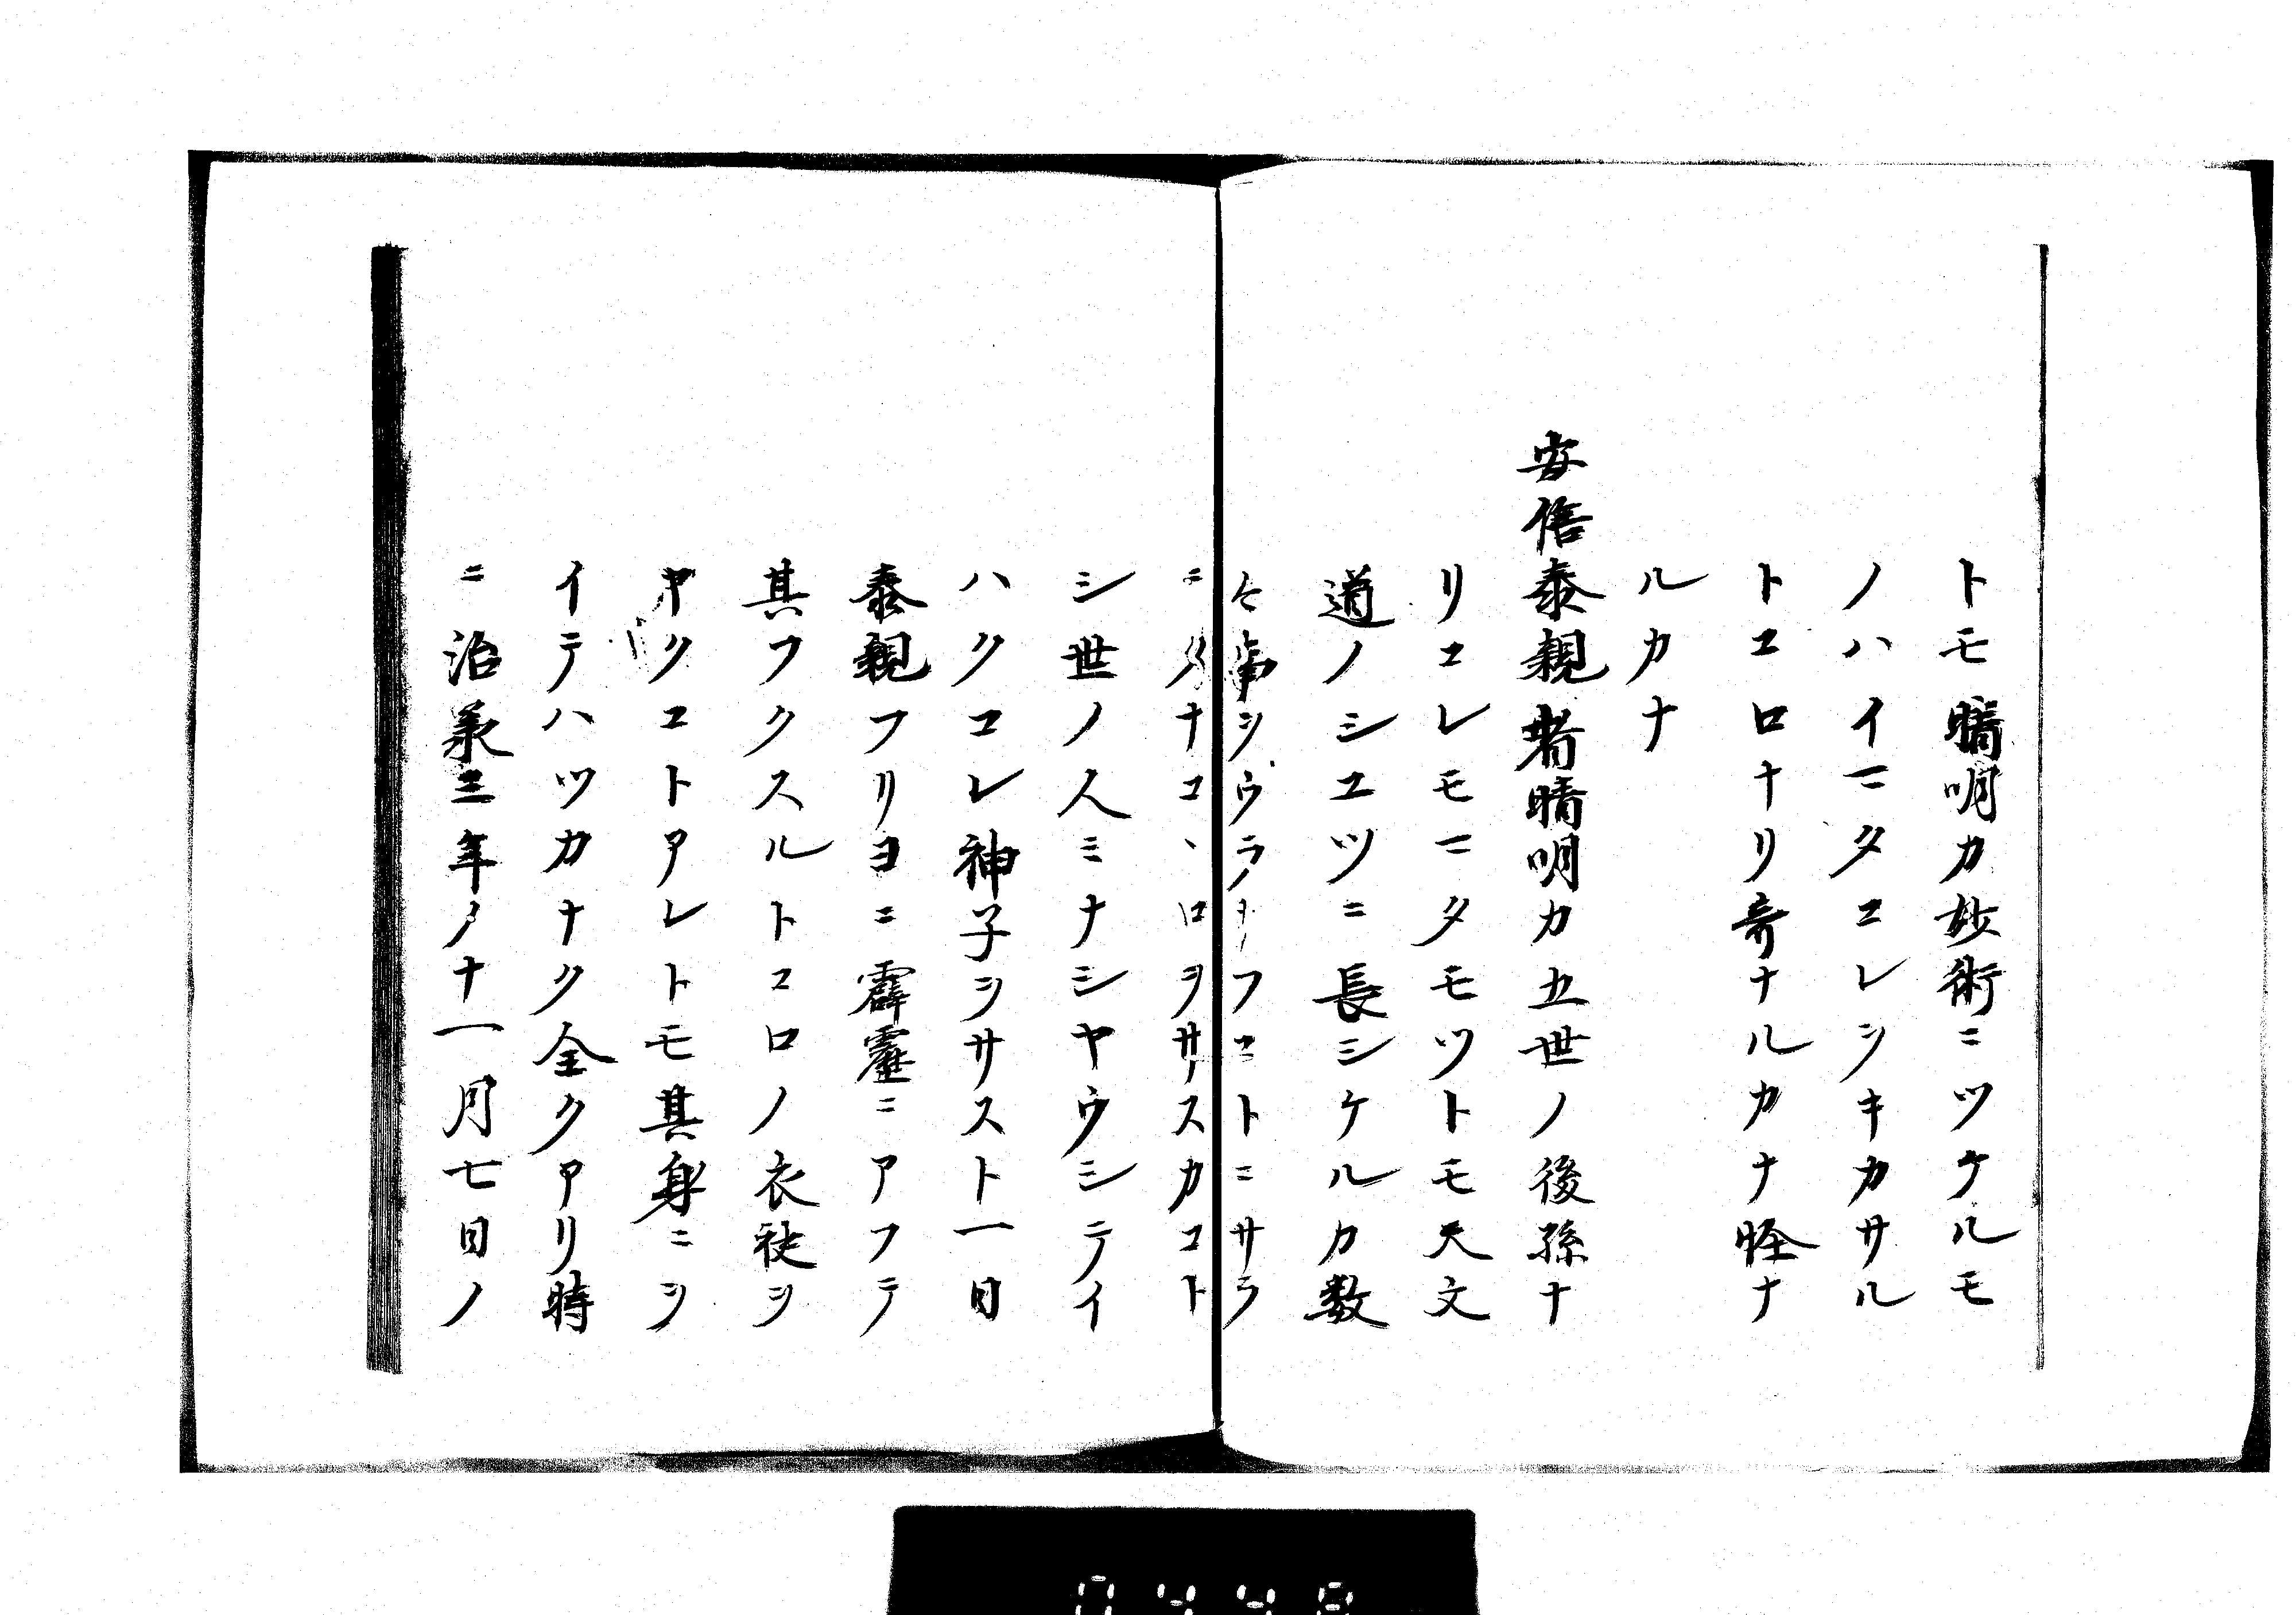 トモ晴明カ妙術ニツケルモ
ノハイマタコレヲキカサル
トコロナリ奇ナルカナ怪ナ
ルカナ
安倍泰親者晴明カ五世ノ後孫ナ
リコレモマタモツトモ天文
道ノシユツニ長シケルカ数
々事ヲウラナフコトニサラ
ニタナコヽロヲサスカコト
シ世ノ人ミナシヤウシテイ
ハクコレ神子ヲサスト一日
泰親フリヨニ霹靂ニアフテ
其フクスルトコロノ衣袂ヲ
ヤクコトアレトモ其身ニヲ
イテハツカナク全クアリ時
ニ治承三年ノ十一月七日ノ
0448